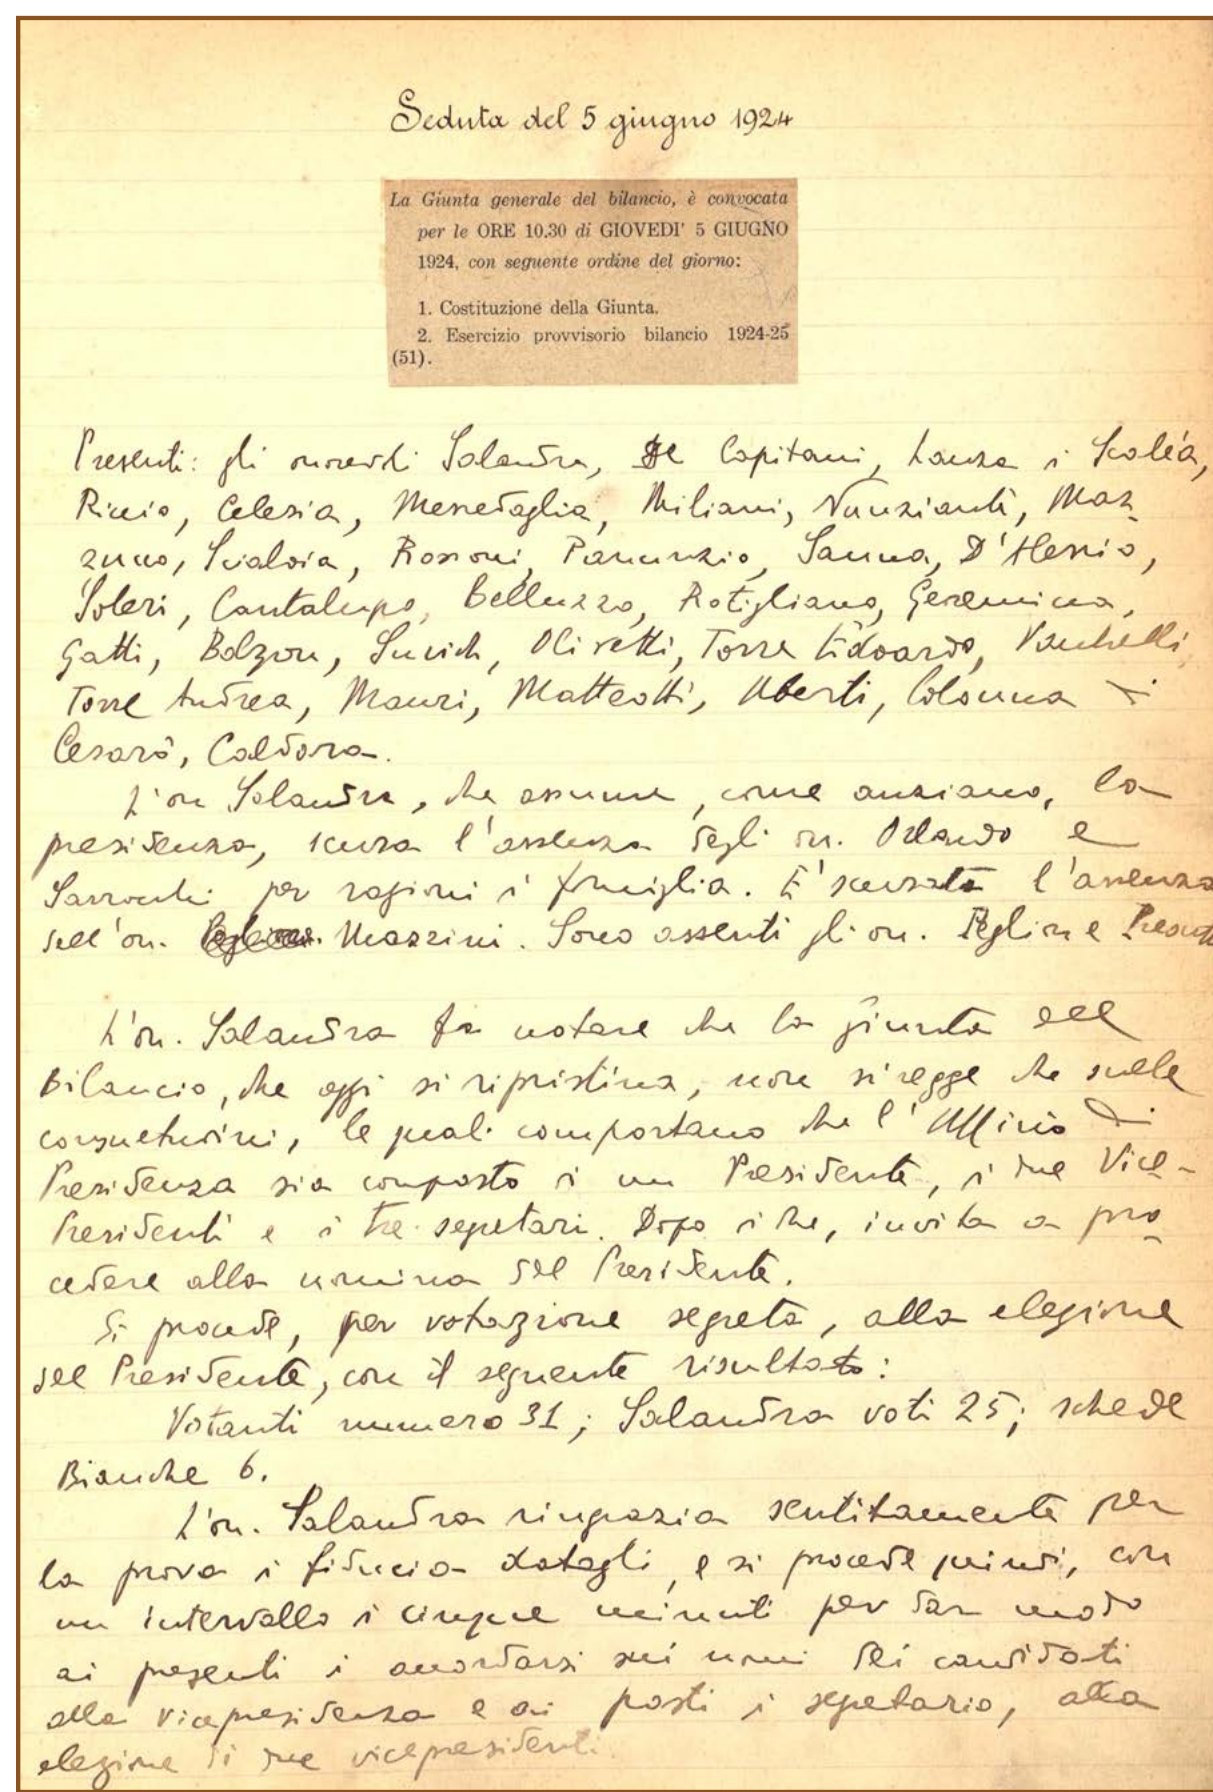 Seduta del 5 giugno 1924
La Giunta generale del bilancio, è convocata
per le ORE 10.30 di GIOVEDI' 5 GIUGNO
1924, con seguente ordine del giorno:
1. Costituzione della Giunta.
2. Esercizio provvisorio bilancio 1924-25
(51).
Presenti: gli onorevoli Salandra, De Capitani, Lanza di Scalèa,
Riccio, Celesia, Messedaglia, Miliani, Nunziante, Maz-
zucco, Scialoia, Rossoni, Panunzio, Sanna, D'Alessio,
Soleri, Cantalupo, Belluzzo, Rotigliano, Geremicca,
Gatti, Bolzon, Suvich, Olivetti, Torre Edoardo,
Torre Andrea, Mauri, Matteotti, Uberti, Colonna di
Cesarò, Caldara.
L'on Salandra, che assume, come anziano, la
presidenza, scusa l'assenza degli on. Orlando e
Sarrocchi per ragioni di famiglia. E' scusata l'assenza
dell'on. Mazzini. Sono assenti gli on. Peglion e
L'on. Salandra fa notare che la giunta del
Bilancio, che oggi si ripristina, non si regge che sulle
consuetudini, le quali comportano che l'Ufficio di
Presidenza sia composto di un Presidente, di due Vice-
Presidenti e di tre segretari. Dopo di che, invita a pro-
cedere alla nomina del Presidente.
Si procede, per votazione segreta, alla elezione
del Presidente, con il seguente risultato:
Votanti numero 31; Salandra voti 25; schede
Bianche 6.
L'on. Salandra ringrazia sentitamente per
la prova di fiducia datagli, e si procede quindi, con
un intervallo di cinque minuti per dar modo
ai presenti di accordarsi sui nomi dei candidati
alla vicepresidenza e ai posti di segretario, alla
elezione di due vicepresidenti.